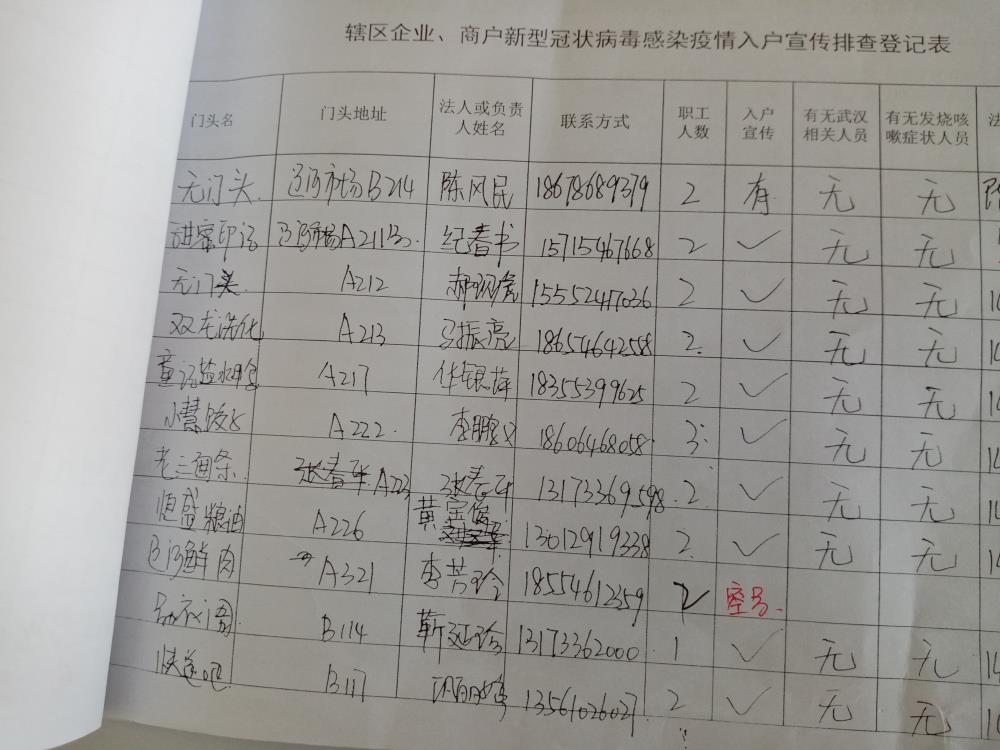 辖区企业、商户新型冠状病毒感染疫情入户宣传排查登记表
门头名 门头地址 法人或负责人姓名 联系方式 职工人数 入户宣传 有无武汉相关人员 有无发烧咳嗽症状人员 法
无门头 市场B214 陈风民 18678689379 2 有 无 无
甜蜜印记 A211B 纪春书 15715467668 2 ✓ 无 无
无门头 A212 15552417036 2 ✓ 无 无
双龙洗化 A213 马振亮 1865464258 2 ✓ 无 无
A217 华银萍 18355399625 2 ✓ 无 无
小慧 A222 李鹏 18606468058 3 ✓ 无 无
老三面条 A223 张春 13173369598 2 ✓ 无 无
恒盛粮油 A226 黄宝俊 13012919338 2 ✓ 无 无
鲜肉 A321 李芳玲 18554612359 2 空号
B114 靳延 13173362000 1 ✓ 无 无
快递吧 B117 13561026027 2 ✓ 无 无